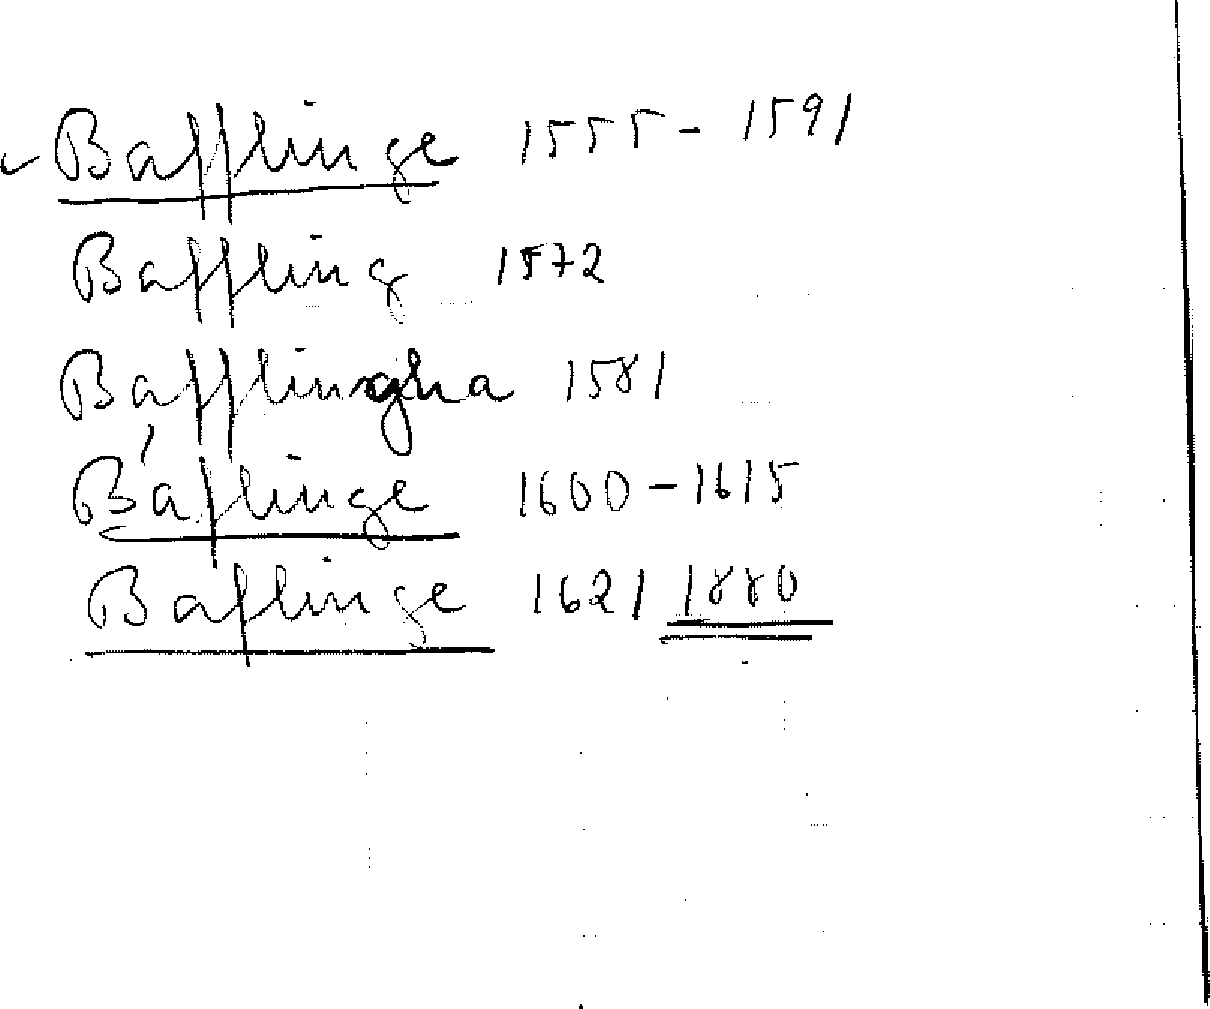 Bafflinge 1555 - 1591
Baffling 1572
Bafflingha 1581
Baflinge 1600 - 1615
Baflinge 1621 1880